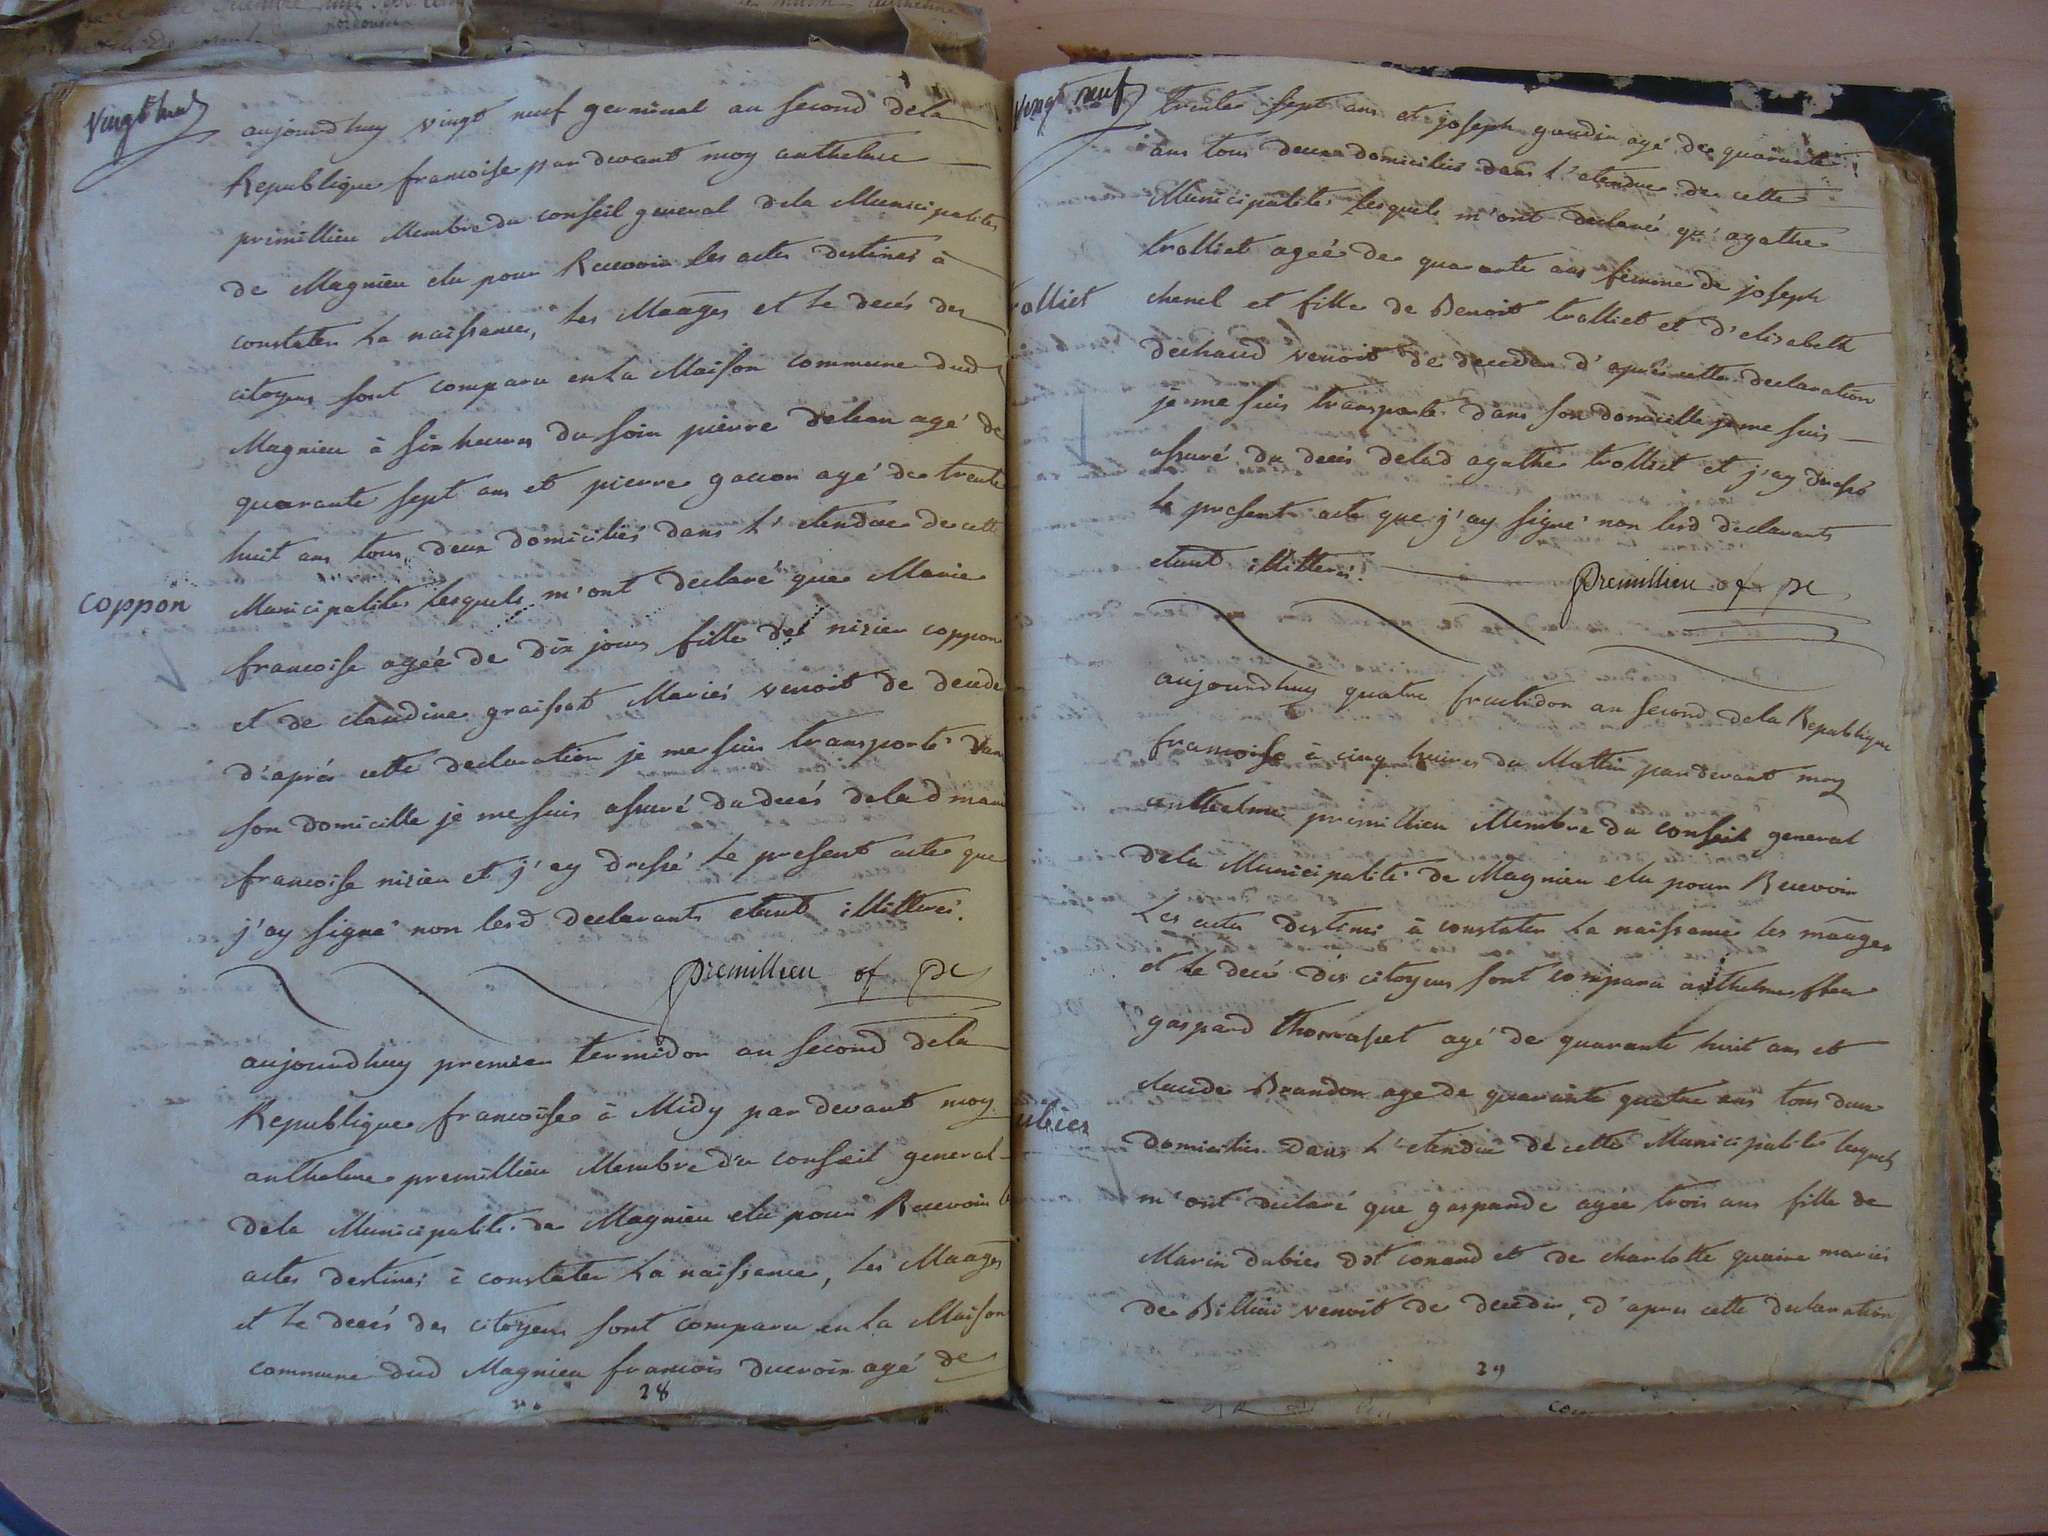 vingt huit
aujourdhuy vingt neuf germinal an second dela
Republique francoise par devant moy anthelme
premillieu Membre du conseil general dela Municipalité
de Magnieu elu pour Recevoir les actes destinés à
constater la naissance, les Maages et le decés des
citoyens sont comparu en la Maison commune dud
Magnieu à six heures du soir pierre dehan agé de
quarante sept ans et pierre gacon agé de trente
huit ans tous deux domiciliés dans l'etendue de cette
coppon
Municipalité lesquels m'ont declaré que Marie
francoise ageé de dix jours fille de nizier coppon
et de claudine graissat Mariés venoit de deceder
d'aprés cette declaration je me suis transporté dans
son domicille je me suis assuré du decés delad marie
francoise nizier et j'ay dressé le present acte que
j'ay signé non lesd declarants etant illitterés.
premillieu of pc
aujourdhuy premier termidor an second dela
Republique francoise à Midy par devant moy
anthelme premillieu Membre du conseil general
dela Municipalité de Magnieu elu pour Recevoir les
actes destinés à constater la naissance, les Maages
et le decés des citoyens sont comparu en la Maison
commune dud Magnieu francois ducroix agé de
28
vingt neuf
trente sept ans et joseph goudin agé de quarante
ans tous deux domiciliés dans l'etendue de cette
Municipalité lesquels m'ont declaré qu'agathe
trolliet ageé de quarante ans femme de joseph
trolliet
chenel et fille de Benoit trolliet et d'elisabeth
dechaud venoit de deceder d'aprés cette declaration
je me suis transporté dans son domicille je me suis
assuré du decés delad agathe trolliet et j'ay dressé
le present acte que j'ay signé non lesd declarants
etant illitterés.
premillieu of pc
aujourdhuy quatre fructidor an second dela Republique
francoise à cinq heures du Mattin par devant moy
anthelme premillieu Membre du conseil general
dela Municipalité de Magnieu elu pour Recevoir
Les actes destinés à constater la naissance les maages
et le decés des citoyens sont comparu anthelme
gaspard thorrasset agé de quarante huit ans et
claude Brandon age de quarante quatre ans tous deux
ubier
domiciliés dans l'etendue de cette Municipalité lesquels
m'ont declaré que gasparde agee trois ans fille de
Marin dubier dit conand et de charlotte quaine mariés
de Billieu venoit de deceder, d'apres cette declaration
29